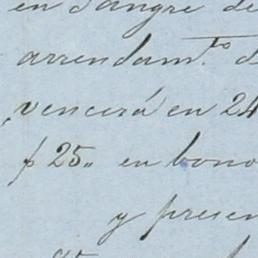 en Sangre de
arrendam.to d
vencerá en 24
$ 25,, en bono
y presen